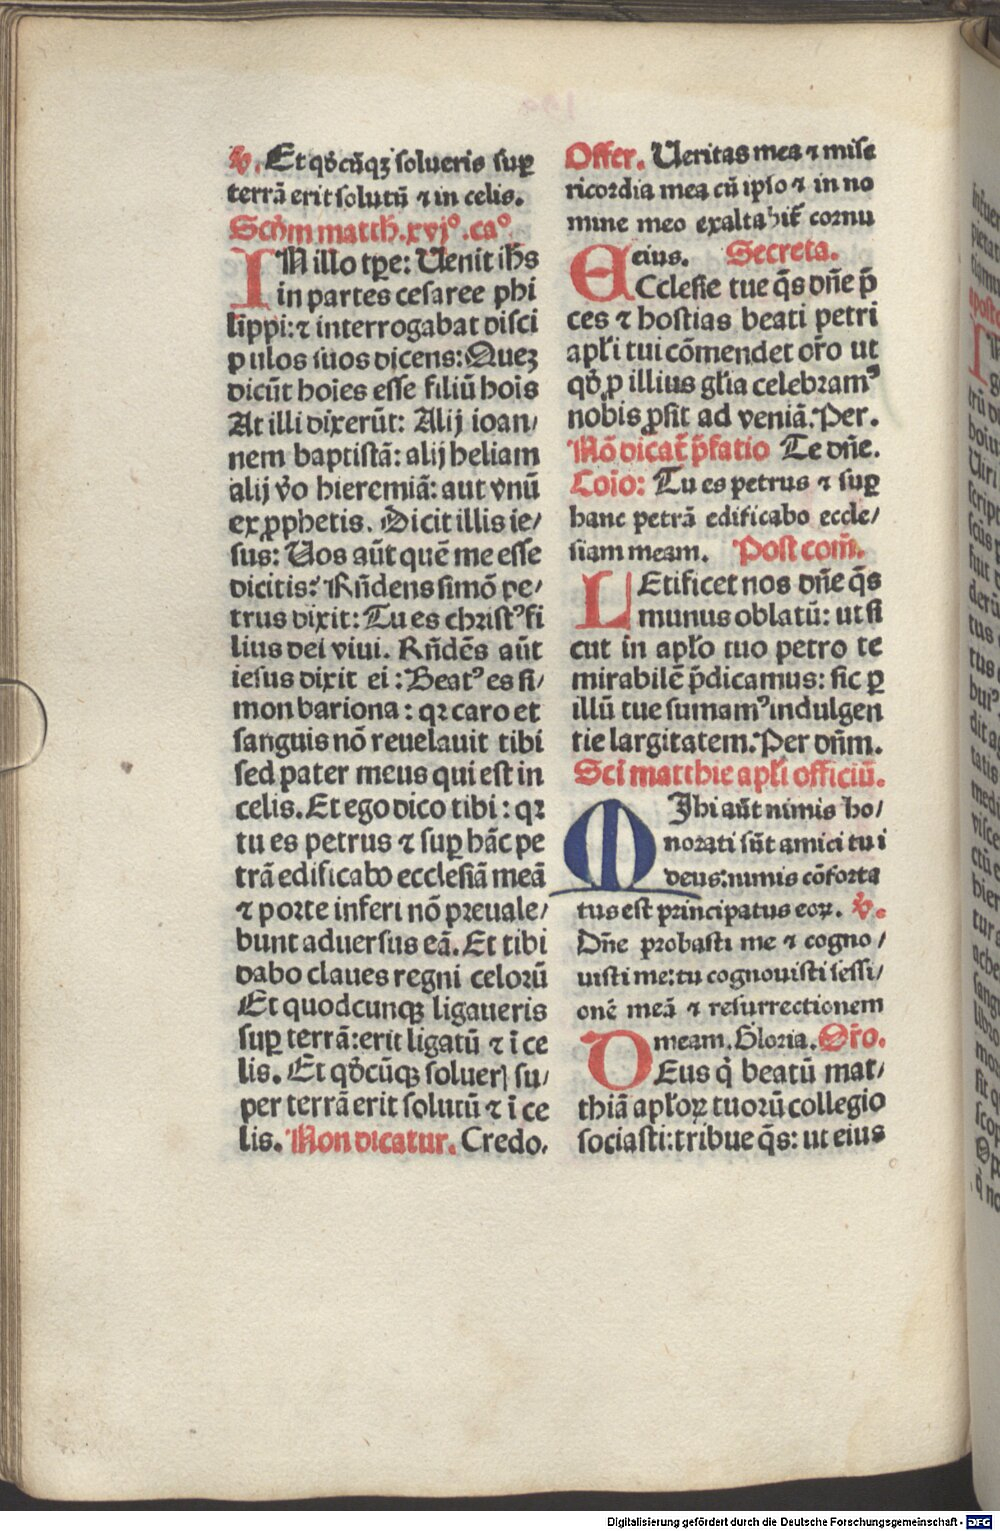 ℣. Et qďcūqꝫ solueris suꝑ
terrā erit solutū ⁊ in celis.
Scďm matth. xvjº. caº.
IN illo tꝑe: Uenit ih̄s
in partes cesaree phi
lippi: ⁊ interrogabat disci
pulos suos dicens: Quez
dicūt hoīes esse filiū hoīs
At illi dixerūt: Alij ioan/
nem baptistā: alij heliam
alij v̊o hieremiā: aut vnū
ex ꝓphetis. Dicit illis ie/
sus: Uos aūt quē me esse
dicitis? Rn̄dens simō pe/
trus dixit: Tu es christꝰ fi
lius dei viui. Rn̄dēs aūt
iesus dixit ei: Beatꝰ es si/
mon bariona: qꝛ caro et
sanguis nō reuelauit tibi
sed pater meus qui est in
celis. Et ego dico tibi: qꝛ
tu es petrus ⁊ suꝑ hāc pe
trā edificabo ecclesiā meā
⁊ porte inferi nō preuale/
bunt aduersus eā. Et tibi
dabo claues regni celorū
Et quodcunqꝫ ligaueris
suꝑ terrā: erit ligatū ⁊ ī ce
lis. Et qďcūqꝫ soluerꝭ su/
per terrā erit solutū ⁊ ī ce
lis. Non dicatur. Credo.
Offer. Ueritas mea ⁊ mise
ricordia mea cū ipso ⁊ in no
mine meo exaltabit̄ cornu
eius. Secreta.
ECclesie tue q̄s dn̄e p̄
ces ⁊ hostias beati petri
apľi tui cōmendet or̄o ut
qď ꝓ illius gľia celebramꝰ
nobis ꝓsit ad veniā. Per.
Nō dicat̄ p̄fatio Te dn̄e.
Coīo: Tu es petrus ⁊ suꝑ
hanc petrā edificabo eccle/
siam meam. Post com̄.
LEtificet nos dn̄e q̄s
munus oblatū: ut si
cut in apľo tuo petro te
mirabilē p̄dicamus: sic ꝑ
illū tue sumamꝰ indulgen
tie largitatem. Per dn̄m.
Scī matthie apľi officiū.
MIhi aūt nimis ho/
norati sūt amici tui
deus: nimis cōforta
tus est principatus eoꝝ. ℣.
Dn̄e probasti me ⁊ cogno/
uisti me: tu cognouisti sessi/
onē meā ⁊ resurrectionem
meam. Gloria. Or̄o.
DEus q̇ beatū mat/
thiā apľoꝝ tuorū collegio
sociasti: tribue q̄s: ut eius
Digitalisierung gefördert durch die Deutsche Forschungsgemeinschaft - DFG